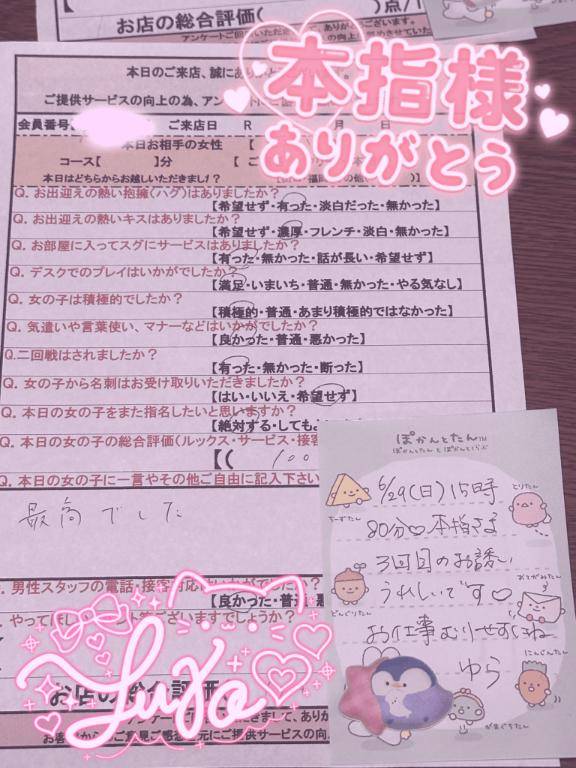 お店の総合評価(
)点/1
アンケートご回
本日のご来店、誠にあり
ご提供サービスの向上の為、アン
本指様
ありがとう
会員番号
ご来店日 R 月 日
本日お相手の女性 【
コース【 】分 【
本日はどちらからお越しいただきまし
Q. お出迎えの熱い抱擁(ハグ)はありましたか?
【希望せず・有った・淡白だった・無かった】
Q. お出迎えの熱いキスはありましたか?
【希望せず・濃厚・フレンチ・淡白・無かった】
Q. お部屋に入ってスグにサービスはありましたか?
【有った・無かった・話が長い・希望せず】
Q. デスクでのプレイはいかがでしたか?
【満足・いまいち・普通・無かった・やる気なし】
Q. 女の子は積極的でしたか?
【積極的・普通・あまり積極的ではなかった】
Q. 気遣いや言葉使い、マナーなどはいかがでしたか?
【良かった・普通・悪かった】
Q.二回戦はされましたか?
【有った・無かった・断った】
Q. 女の子から名刺はお受け取りいただきましたか?
【はい・いいえ・希望せず】
Q. 本日の女の子をまた指名したいと思いますか?
【絶対する・しても
Q. 本日の女の子の総合評価(ルックス・サービス・接客
【( 100
Q. 本日の女の子に一言やその他ご自由に記入下さい
最高でした
男性スタッフの電話・接客対応はいかがでしたか?
【良かった・普通
お店の総合評価
Yuyo
ぽかんとたん
ぽかんとたん と ぽかんとらぶ
6/29(日)15時
80分♡本指さま
3回目のお誘い
うれしいです♡
お仕事むりせずにね
ゆら
ちーずたん
とりたん
どんぐりたん
おてがみたん
にんじんたん
がまぐちたん